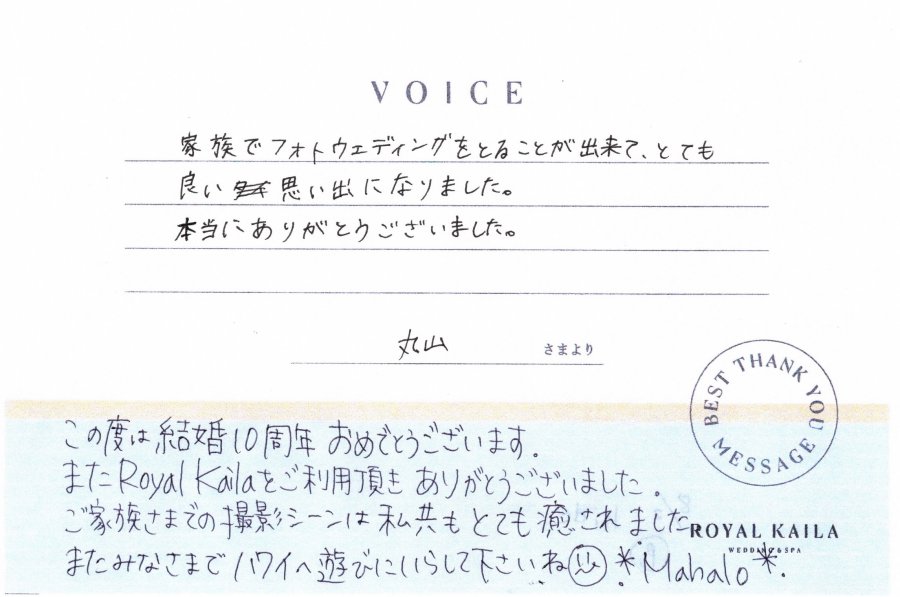 VOICE
家族でフォトウエディングをとることが出来て、とても
良い 思い出になりました。
本当にありがとうございました。
丸山 さまより
BEST THANK YOU MESSAGE
この度は結婚10周年 おめでとうございます.
またRoyal Kailaをご利用頂き ありがとうございました.
ご家族さまでの撮影シーンは私共もとても癒されました
ROYAL KAILA
WEDDING & SPA
またみなさまでハワイへ遊びにいらして下さいね *Mahalo*.